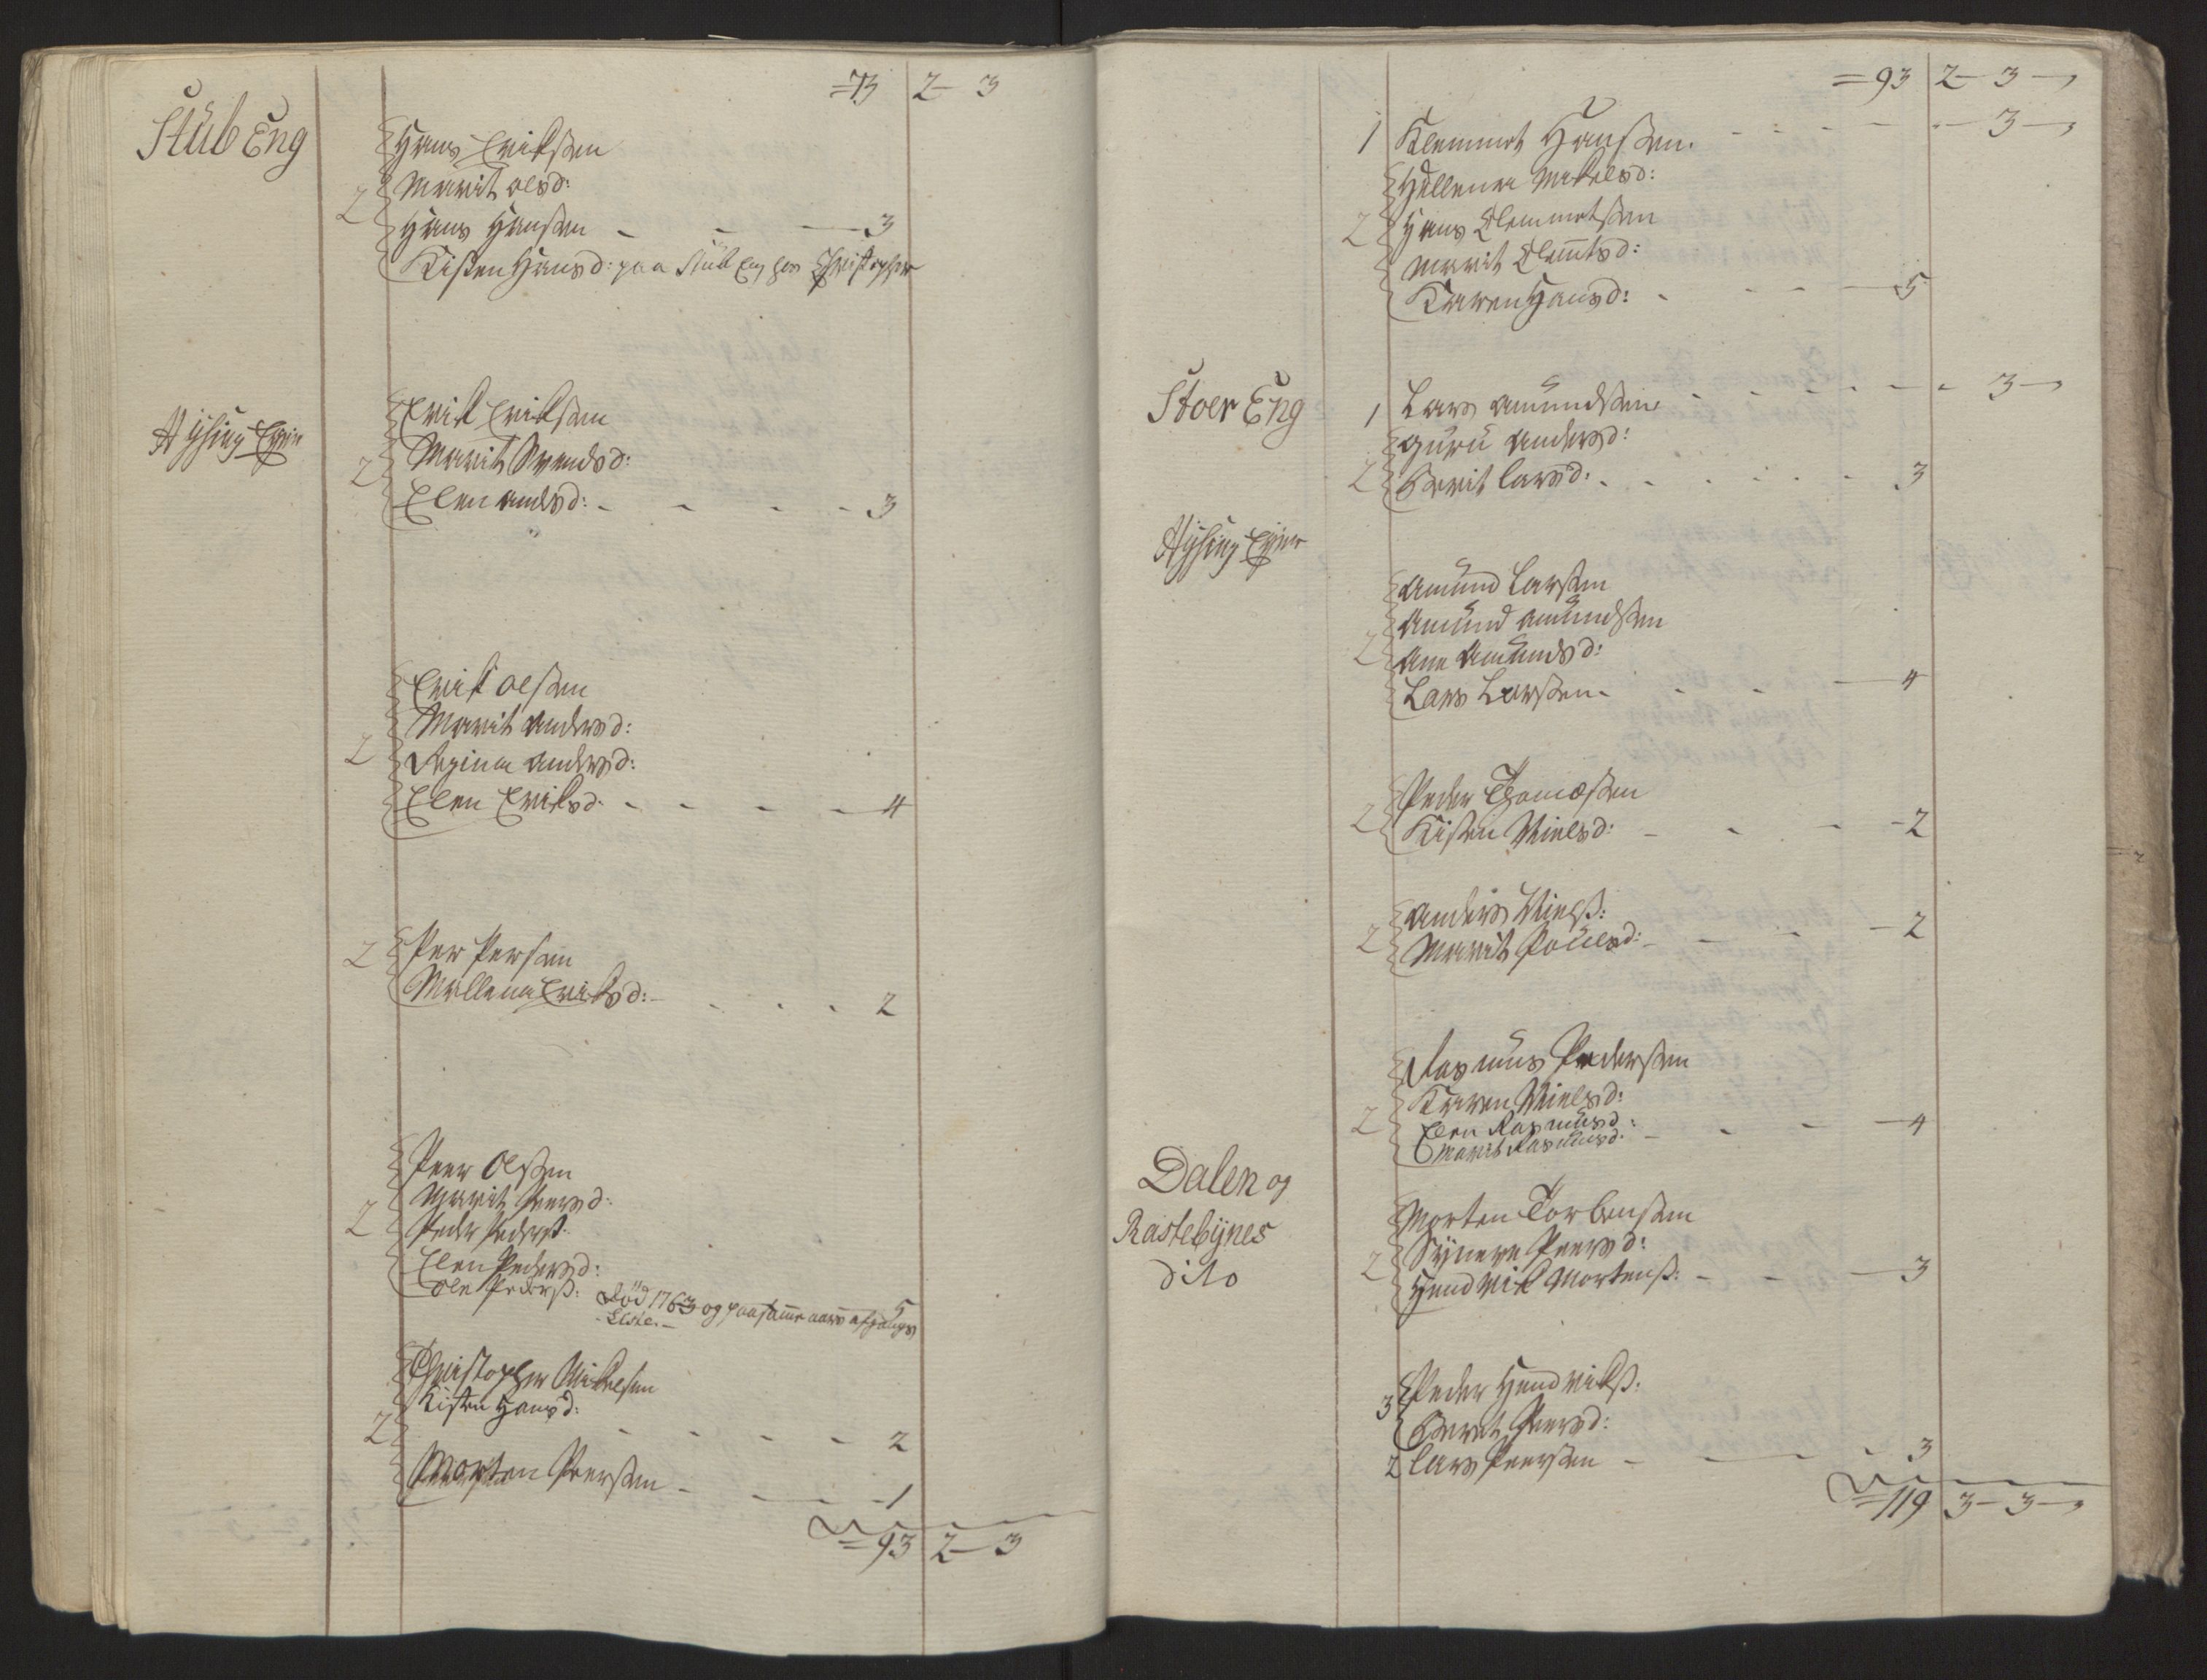 =73 2 — 3
Stüb Eng
Hans Eriksen
Marit Olsd:
2 Hans Hansen - - — 3
Kisten Hansd: paa Stüb Eng hos Christopher
Hÿsing
Erik Eriksen
2 Marit Svendsd:
Elen Andsd: - - - - 3
Erik Olsen
Marit Andersd:
2 Regina Andersd:
Elen Eriksd. - - - — 4
2 Per Persen
Mallena Eriksd: - - - - 2
Peer Olsen
Marit Peersd:
2 Peder Pederß:
Elen Pedersd:
Ole Pederß: Död 1763 og paa samme aars afgangs 5
Liste. —
Christopher Mikelsen
Kisten Hansd:
2 - - - - 2
Morten Peersen - - — 1
= 93 2 — 3
=93 2 — 3 —
1 Klemmet Hansen. - - - - - 3 —
Hellena Mikelsd:
2 Hans Clemmetsen
Marit Clemtsd:
Karen Hansd: - - - — 5
Stoer Eng
1 Lars Amundsen - - - - - 3 —
Guru Andersd:
2 Berit Larsd: - - - - - 3
Hÿsing
Amund Larsen
Amund Amundsen
2 Ane Amundsd:
Lars Larsen - - - — 4
Peder Thomæsen
2 Kisten Nielsd: - - - - 2
Anders Nielß:
2 Marit Poulsd: - - - - 2
Rasmus Pedersen
Karen Nielsd:
2 Elen Rasmusd:
Marit Rasmusd: - - - — 4
Dalen og
Rastebÿnes
dito
Morten Torbensen
2 Sÿnere Peersd:
Hendrik Mortenß: - - — 3
Peder Hendrikß:
3 Berit Peersd:
2 Lars Peersen - - - 3
= 119 3 — 3 —